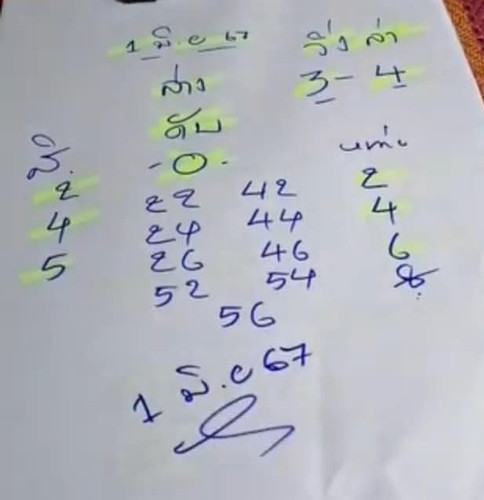 1 มิ.ย 67 วิ่ง ล่า
ล่าง 3-4
ดับ
สิ. -0- หน่วย
2 22 42 2
4 24 44 4
5 26 46 6
52 54
56
1 มิ.ย 67